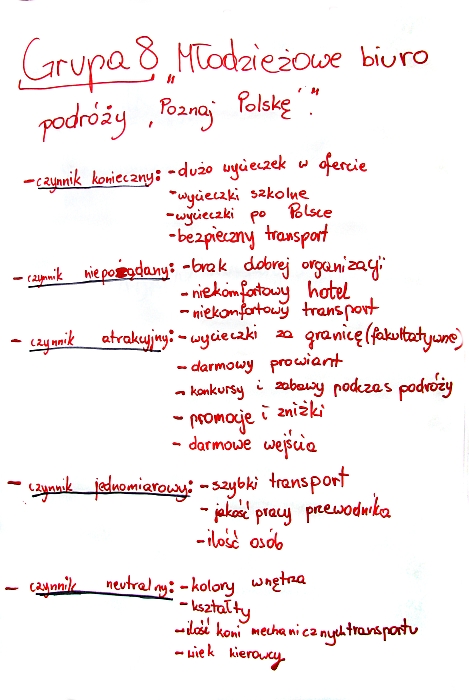 Grupa 8 „Młodzieżowe biuro
podróży ‚Poznaj Polskę’".
- czynnik konieczny: - dużo wycieczek w ofercie
- wycieczki szkolne
- wycieczki po Polsce
- bezpieczny transport
- czynnik niepożądany: - brak dobrej organizacji
- niekomfortowy hotel
- niekomfortowy transport
- czynnik atrakcyjny: - wycieczki za granicę (fakultatywne)
- darmowy prowiant
- konkursy i zabawy podczas podróży
- promocje i zniżki
- darmowe wejścia
- czynnik jednomiarowy: - szybki transport
- jakość pracy przewodnika
- ilość osób
- czynnik neutralny: - kolory wnętrza
- kształty
- ilość koni mechanicznych transportu
- wiek kierowcy